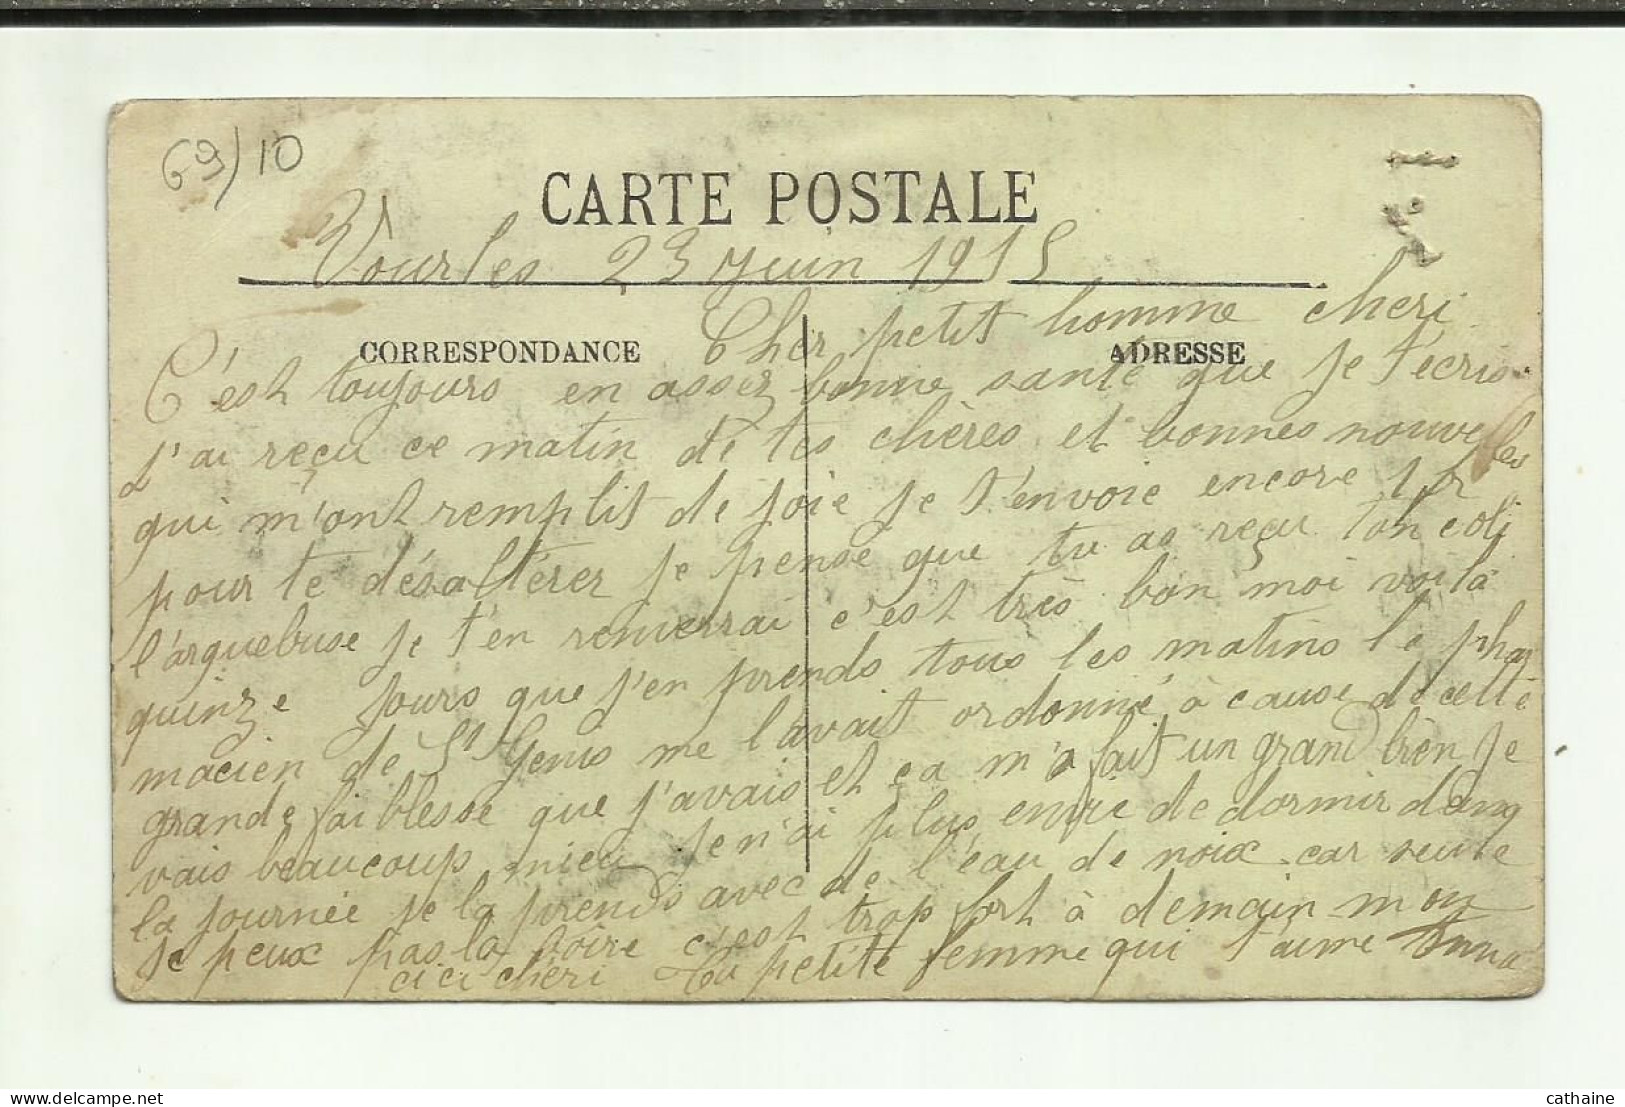 69/10
CARTE POSTALE
Vourles 23 juin 1915
CORRESPONDANCE
ADRESSE
Cher petit homme cheri
C'est toujours en assez bonne santé que je t'écris
j'ai reçu ce matin de tes chères et bonnes nouvelles
qui m'ont remplit de joie je t'envoie encore 1 fr
pour te désaltérer je pense que tu as reçu ton coli
l'arquebuse je t'en renverrai c'est très bon moi voilà
quinze jours que j'en prends tous les matins le phar
macien de St Genis me l'avait ordonné à cause de cette
grande faiblesse que j'avais et ça m'a fait un grand bien je
vais beaucoup mieu je n'ai plus envie de dormir dans
la journée je la prends avec de l'eau de noix car seule
je peux pas la boire c'est trop fort à demain mon
cici chéri Ta petite femme qui t'aime
delcampe.net
cathaine